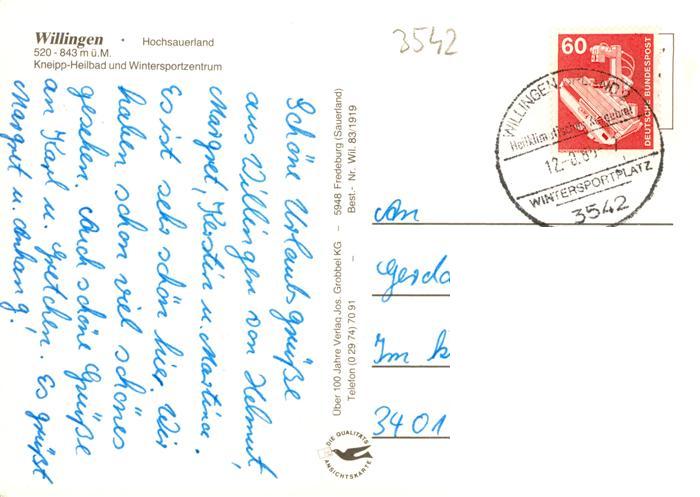 Willingen · Hochsauerland
520 - 843 m ü.M.
Kneipp-Heilbad und Wintersportzentrum
3542
60
DEUTSCHE BUNDESPOST
WILLINGEN
Heilklimatischer
12.-8.8
WINTERSPORTPLATZ
3542
Schöne Urlaubsgrüße
aus Willingen von Helmut,
Margret, Kerstin u. Martina.
Es ist sehr schön hier. Wir
haben schon viel schönes
gesehen. Auch schöne Grüße
an Karl u. Gretchen. Es grüßt
Margret u. Anhang!
Über 100 Jahre Verlag Jos. Grobbel KG – 5948 Fredeburg (Sauerland)
Telefon (0 29 74) 70 91 – Best.- Nr. Wil. 83/1919
DIE QUALITÄTS
ANSICHTSKARTE
An
Gerda
Im k
3401